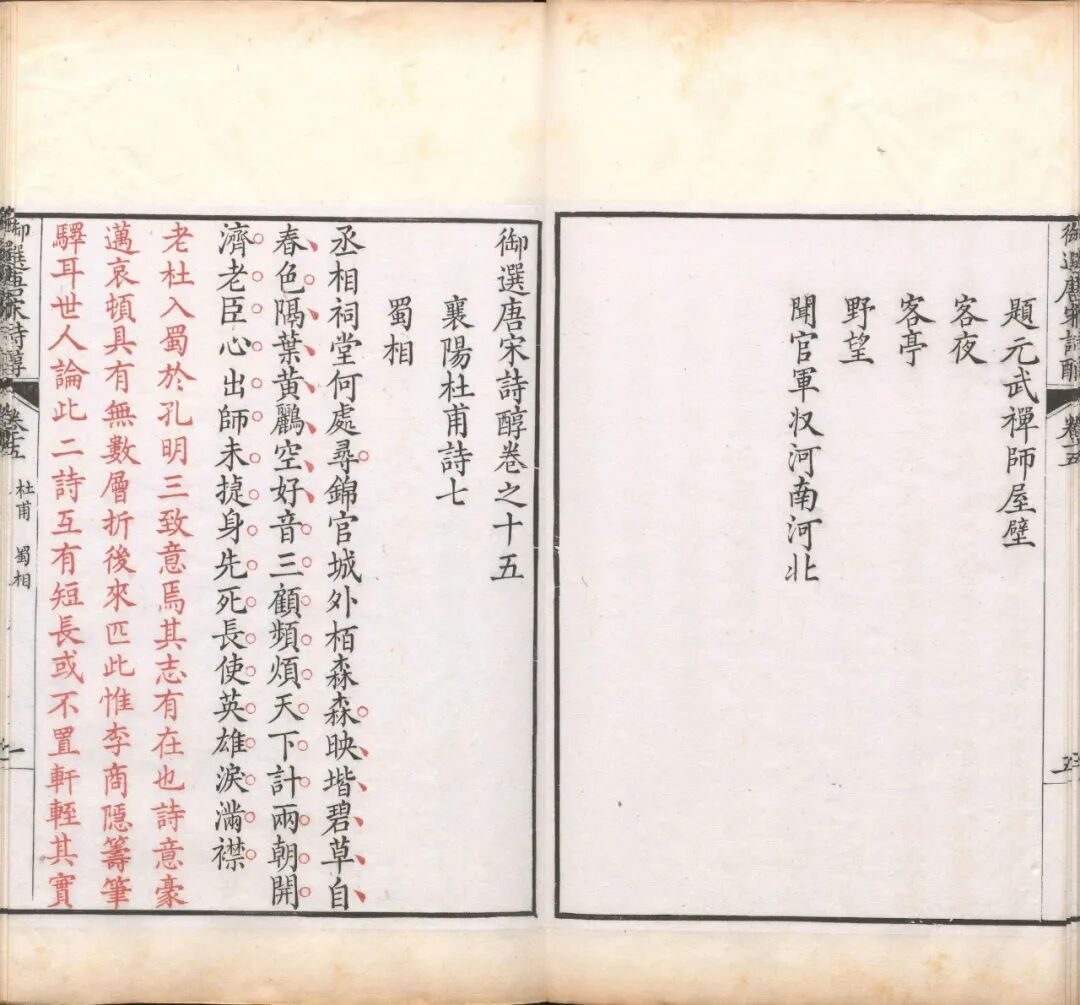 題元武禪師屋壁
客夜
客亭
野望
聞官軍収河南河北
御選唐宋詩醇卷之十五
襄陽杜甫詩七
蜀相
丞相祠堂何處尋錦官城外栢森森映堦碧草自
春色隔葉黃鸝空好音三顧頻煩天下計兩朝開
濟老臣心出師未捷身先死長使英雄淚滿襟
老杜入蜀於孔明三致意焉其志有在也詩意豪
邁哀頓具有無數層折後來匹此惟李商隱籌筆
驛耳世人論此二詩互有短長或不置軒輊其實
御選唐宋詩醇
卷十五
杜甫 蜀相
一